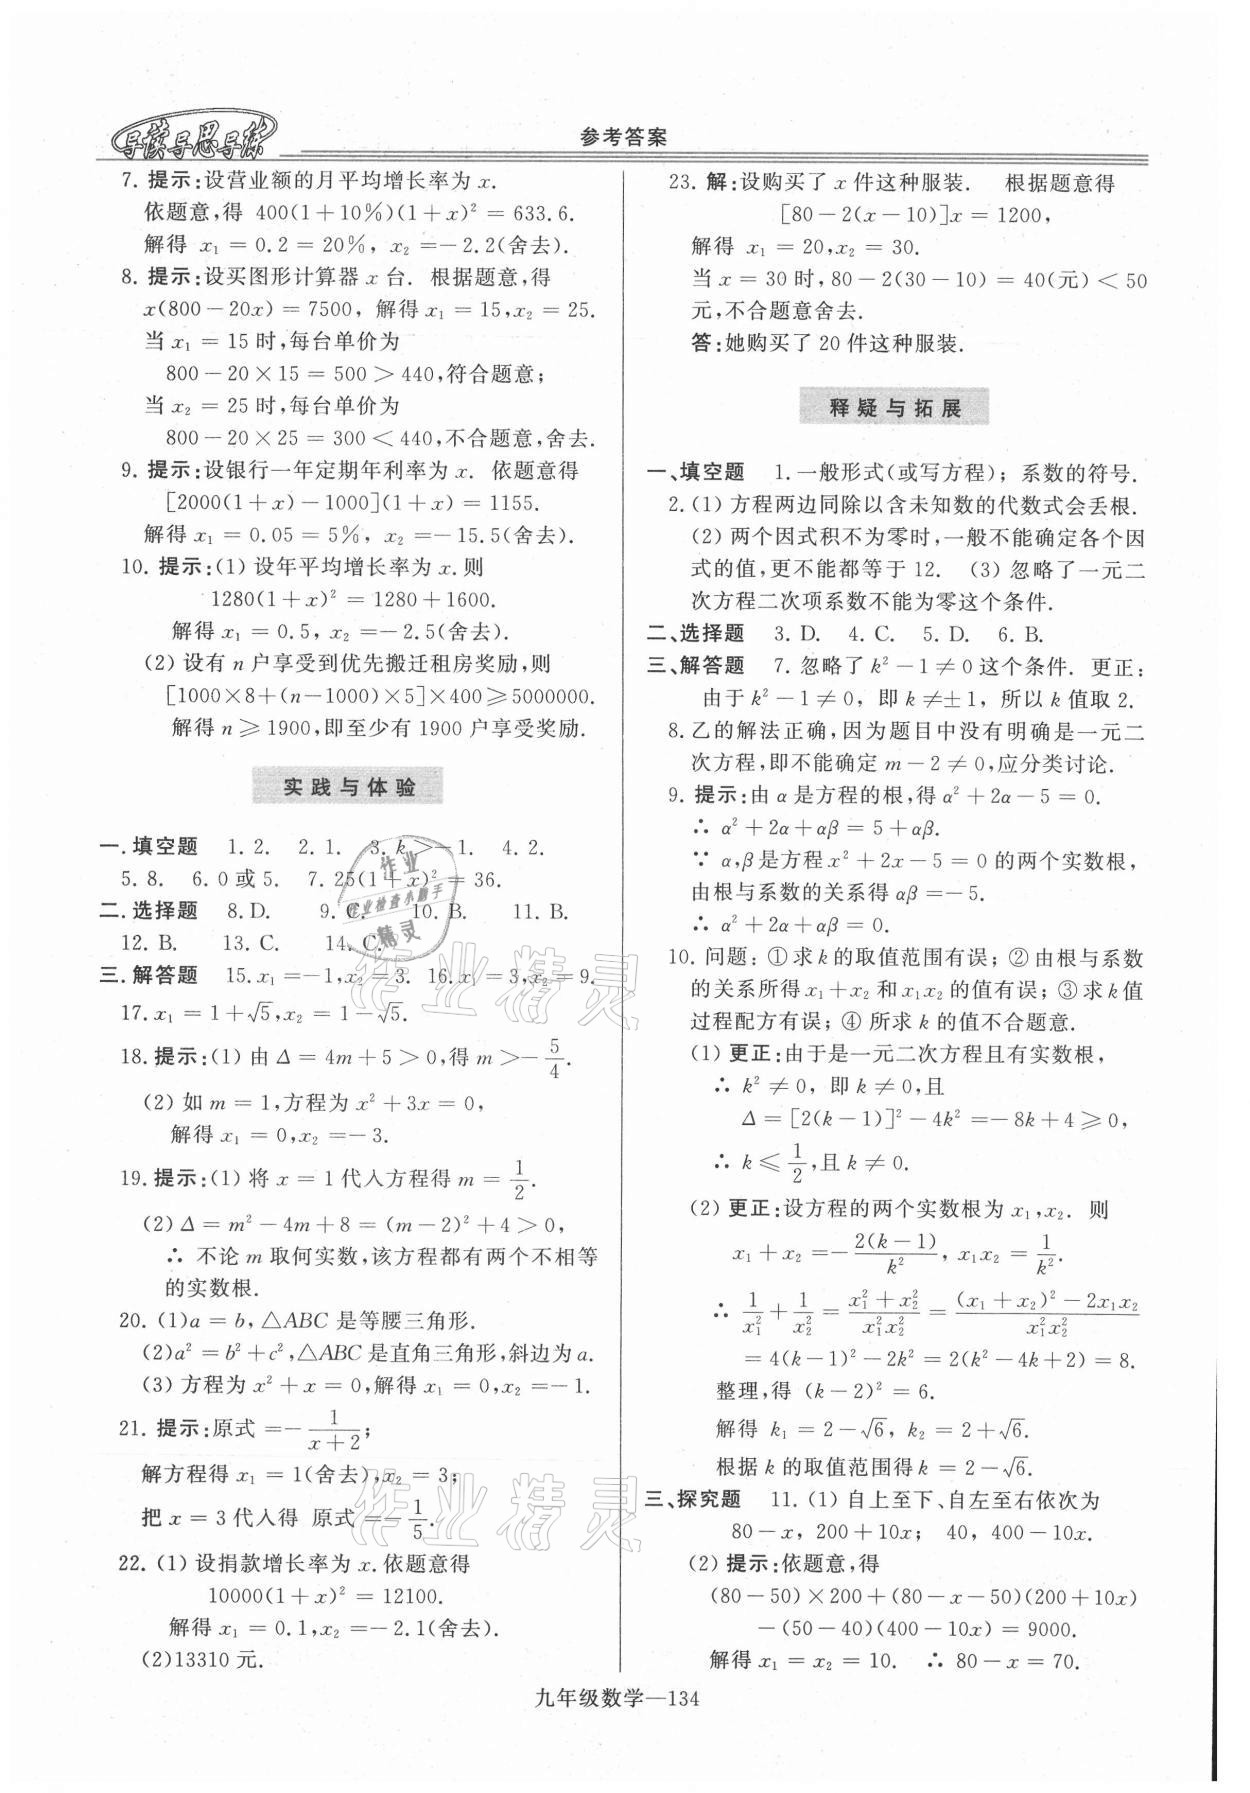 导读导思导练
参考答案
7. 提示:设营业额的月平均增长率为 x.
依题意,得 400(1+10%)(1+x)² = 633.6.
解得 x₁ = 0.2 = 20%, x₂ =-2.2(舍去).
8. 提示:设买图形计算器 x 台. 根据题意,得
x(800-20x) = 7500, 解得 x₁ = 15,x₂ = 25.
当 x₁ = 15 时,每台单价为
800-20×15 = 500 > 440,符合题意;
当 x₂ = 25 时,每台单价为
800-20×25 = 300 < 440,不合题意,舍去.
9. 提示:设银行一年定期年利率为 x. 依题意得
[2000(1+x)-1000](1+x) = 1155.
解得 x₁ = 0.05 = 5%, x₂ =-15.5(舍去).
10. 提示:(1) 设年平均增长率为 x.则
1280(1+x)² = 1280+1600.
解得 x₁ = 0.5, x₂ =-2.5(舍去).
(2) 设有 n 户享受到优先搬迁租房奖励,则
[1000×8+(n-1000)×5]×400⩾5000000.
解得 n ⩾ 1900,即至少有 1900 户享受奖励.
实践与体验
一.填空题 1. 2. 2. 1. 3. k >-1. 4. 2.
5. 8. 6. 0 或 5. 7. 25(1+x)² = 36.
二.选择题 8. D. 9. C. 10. B. 11. B.
12. B. 13. C. 14. C.
三.解答题 15. x₁ =-1,x₂ =3. 16. x₁ = 3,x₂ = 9.
17. x₁ = 1+√5,x₂ = 1-√5.
18. 提示:(1) 由 Δ = 4m+5 > 0,得 m >-5/4.
(2) 如 m = 1,方程为 x²+3x = 0,
解得 x₁ = 0,x₂ =-3.
19. 提示:(1) 将 x = 1 代入方程得 m = 1/2.
(2) Δ = m²-4m+8 = (m-2)²+4 > 0,
∴ 不论 m 取何实数,该方程都有两个不相等
的实数根.
20. (1)a = b, △ABC 是等腰三角形.
(2)a² = b²+c²,△ABC 是直角三角形,斜边为 a.
(3) 方程为 x²+x = 0,解得 x₁ = 0,x₂ =-1.
21. 提示:原式 =-1/(x+2);
解方程得 x₁ = 1(舍去),x₂ = 3;
把 x = 3 代入得 原式 =-1/5.
22. (1) 设捐款增长率为 x.依题意得
10000(1+x)² = 12100.
解得 x₁ = 0.1,x₂ =-2.1(舍去).
(2)13310 元.
23. 解:设购买了 x 件这种服装. 根据题意得
[80-2(x-10)]x = 1200,
解得 x₁ = 20,x₂ = 30.
当 x = 30 时,80-2(30-10) = 40(元) < 50
元,不合题意舍去.
答:她购买了 20 件这种服装.
释疑与拓展
一、填空题 1.一般形式(或写方程); 系数的符号.
2.(1) 方程两边同除以含未知数的代数式会丢根.
(2) 两个因式积不为零时,一般不能确定各个因
式的值,更不能都等于 12. (3) 忽略了一元二
次方程二次项系数不能为零这个条件.
二、选择题 3. D. 4. C. 5. D. 6. B.
三、解答题 7. 忽略了 k²-1≠0 这个条件. 更正:
由于 k²-1 ≠ 0, 即 k ≠±1, 所以 k 值取 2.
8.乙的解法正确,因为题目中没有明确是一元二
次方程,即不能确定 m-2 ≠ 0,应分类讨论.
9. 提示:由 α 是方程的根,得 α²+2α-5 = 0.
∴ α²+2α+αβ = 5+αβ.
∵ α,β是方程x²+2x-5 = 0 的两个实数根,
由根与系数的关系得 αβ =-5.
∴ α²+2α+αβ = 0.
10. 问题: ① 求 k 的取值范围有误; ② 由根与系数
的关系所得x₁+x₂ 和x₁x₂ 的值有误; ③ 求k值
过程配方有误; ④ 所求 k 的值不合题意.
(1) 更正:由于是一元二次方程且有实数根,
∴ k² ≠ 0, 即 k ≠ 0,且
Δ = [2(k-1)]²-4k² =-8k+4 ⩾ 0,
∴ k ⩽ 1/2,且 k ≠ 0.
(2) 更正:设方程的两个实数根为 x₁,x₂. 则
x₁+x₂ =-2(k-1)/k², x₁x₂ = 1/k².
∴ 1/x₁²+1/x₂² = (x₁²+x₂²)/(x₁²x₂²) = ((x₁+x₂)²-2x₁x₂)/(x₁²x₂²)
= 4(k-1)²-2k² = 2(k²-4k+2) = 8.
整理,得 (k-2)² = 6.
解得 k₁ = 2-√6, k₂ = 2+√6.
根据 k 的取值范围得 k = 2-√6.
三、探究题 11. (1) 自上至下、自左至右依次为
80-x, 200+10x; 40, 400-10x.
(2) 提示:依题意,得
(80-50)×200+(80-x-50)(200+10x)
-(50-40)(400-10x) = 9000.
解得 x₁ = x₂ = 10. ∴ 80-x = 70.
九年级数学—134
作业
作业检查小助手
精灵
作业精灵
作业精灵